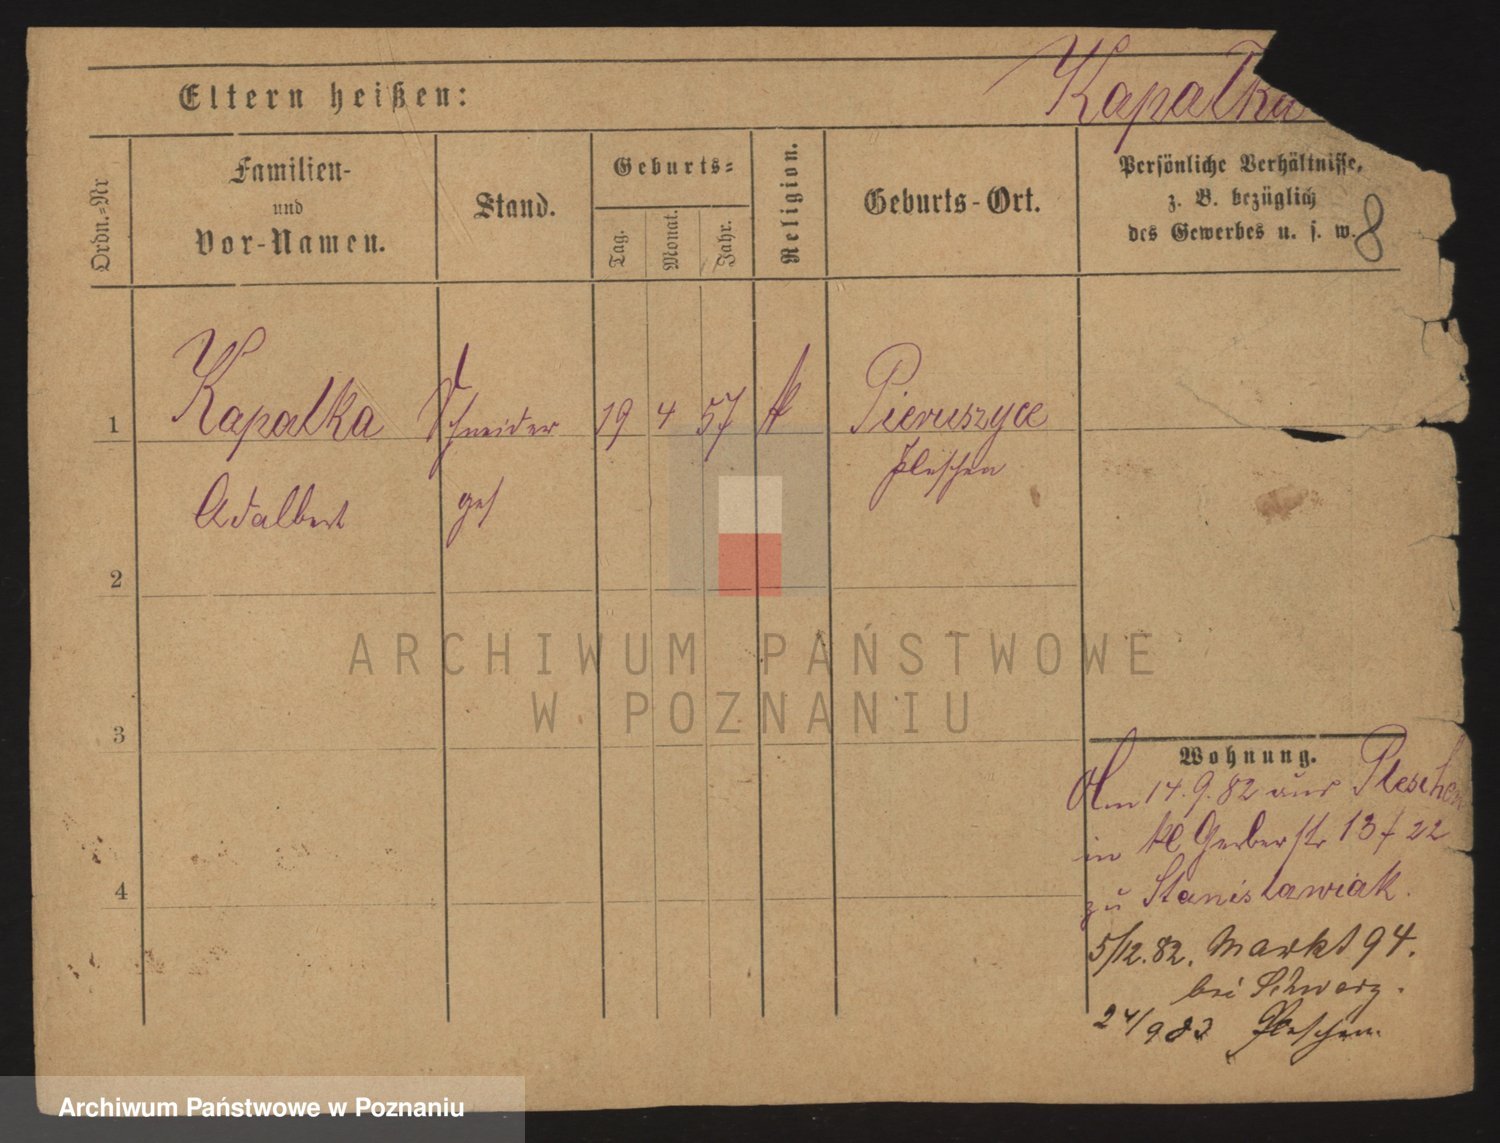 Kapałka
Eltern heißen:
Ordn.-Nr
Familien-
und
Vor-Namen.
Stand.
Geburts-
Tag.
Monat.
Jahr.
Religion.
Geburts-Ort.
Persönliche Verhältnisse,
z. B. bezüglich
des Gewerbes u. s. w.
8
1 Kapałka Schneider 19 4 57 k Pieruszyce
Adalbert ges Pleschen
2
3
4
Wohnung.
Am 14. 9. 82 aus Pleschen
in kl Gerberstr 13 f 22
zu Stanisławiak.
5/12. 82. Markt 94.
bei Schwarz.
24/9 83 Pleschen.
ARCHIWUM PAŃSTWOWE
W POZNANIU
Archiwum Państwowe w Poznaniu